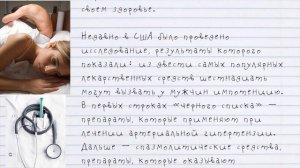 своем здоровье.
Недавно в США было проведено
исследование, результаты которого
показали: из двести самых популярных
лекарственных средств шестнадцать
могут вызвать у мужчин импотенцию.
В первых строках «черного списка» —
препараты, которые применяют при
лечении артериальной гипертензии.
Дальше — спазмолитические средства,
препараты, которые оказывают